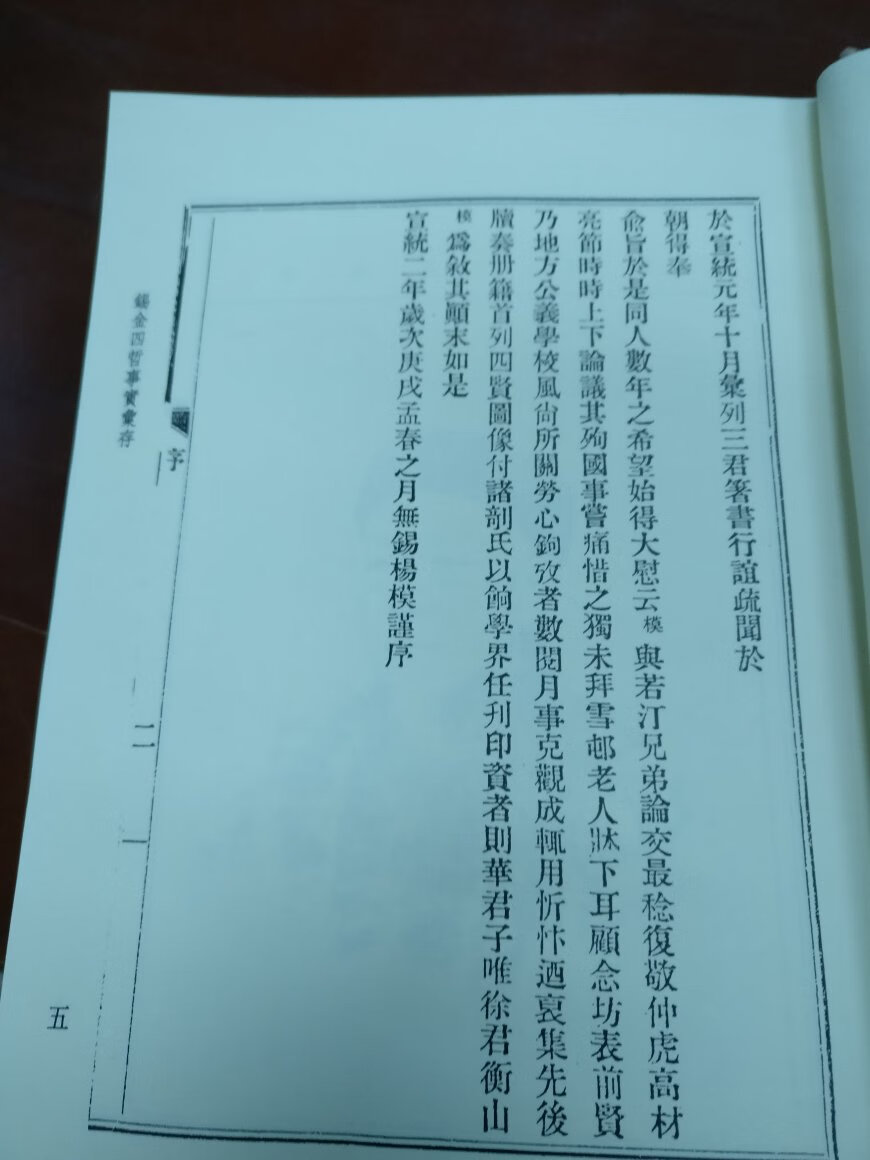 於宣統元年十月彙列三君箸書行誼疏聞於
朝得奉
俞旨於是同人數年之希望始得大慰云模與若汀兄弟論交最稔復敬仲虎高材
亮節時時上下論議其殉國事嘗痛惜之獨未拜雪邨老人牀下耳顧念坊表前賢
乃地方公義學校風尙所關勞心鉤攷者數閱月事克觀成輒用忻忭迺裒集先後
牘奏册籍首列四賢圖像付諸剞氏以餉學界任刋印資者則華君子唯徐君衡山
模爲敘其顚末如是
宣統二年歲次庚戌孟春之月無錫楊模謹序
錫金四哲事實彙存
序
二
五